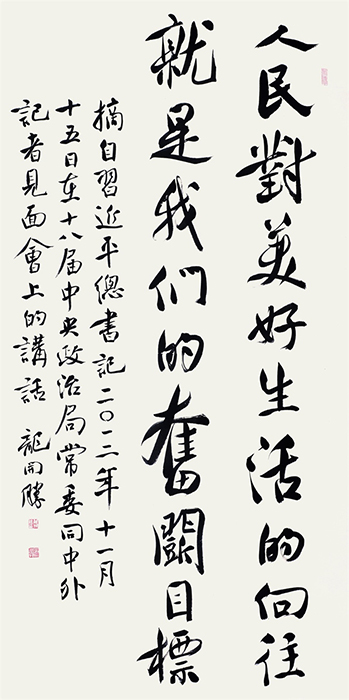 人民對美好生活的向往
就是我們的奮鬭目標
摘自習近平總書記二〇一二年十一月
十五日在十八届中央政治局常委同中外
記者見面會上的講話 龍開勝